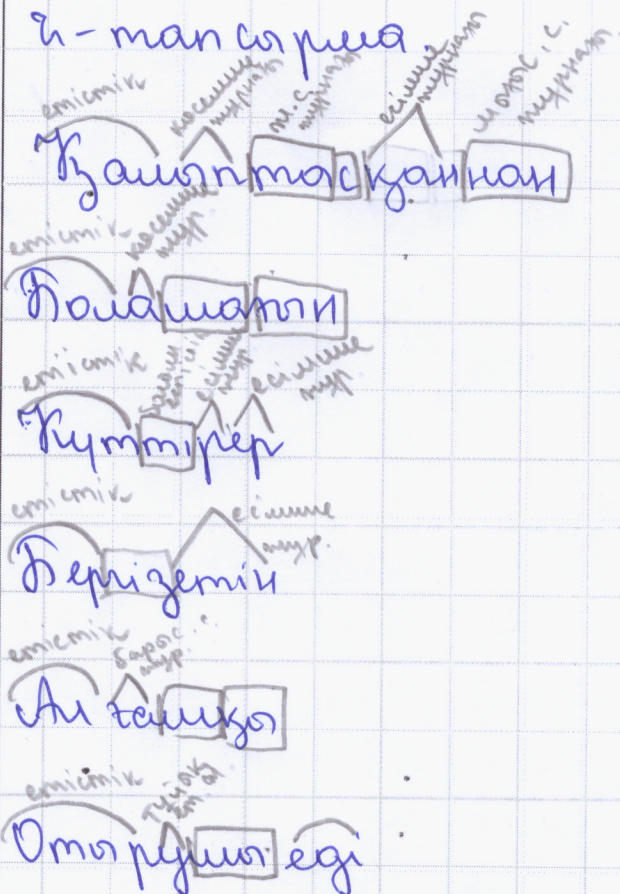 2-тапсырма
етістік көсемше журнағы ж.с. журнағы есімше журнағы
Қалыптасқаннан
етістік көсемше жур.
Боламанын
етістік есімше жур. есімше жур.
Күттірер
етістік есімше жур.
Бергізетін
етістік барыс с. жур.
Алғашқы
етістік тұйық ет.
Отырушы еді